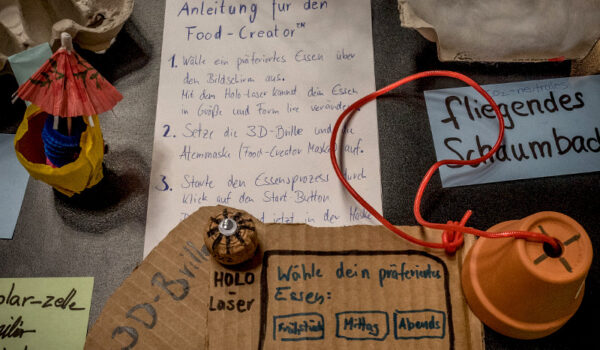 Anleitung für den
Food-Creator™
1. Wähle ein präferiertes Essen über
den Bildschirm aus.
Mit dem Holo-Laser kannst dein Essen
in Größe und Form live
2. Setze die 3D-Brille und die
Atemmaske (Food-Creator Maske) auf.
3. Starte den Essensprozess durch
Klick auf den Start Button
jetzt in der Maske
CO2-neutrales
fliegendes
Schaumbad
3D-Brille
HOLO
-
Laser
Wähle dein präferiertes
Essen:
Frühstück
Mittag
Abends
olar-zelle